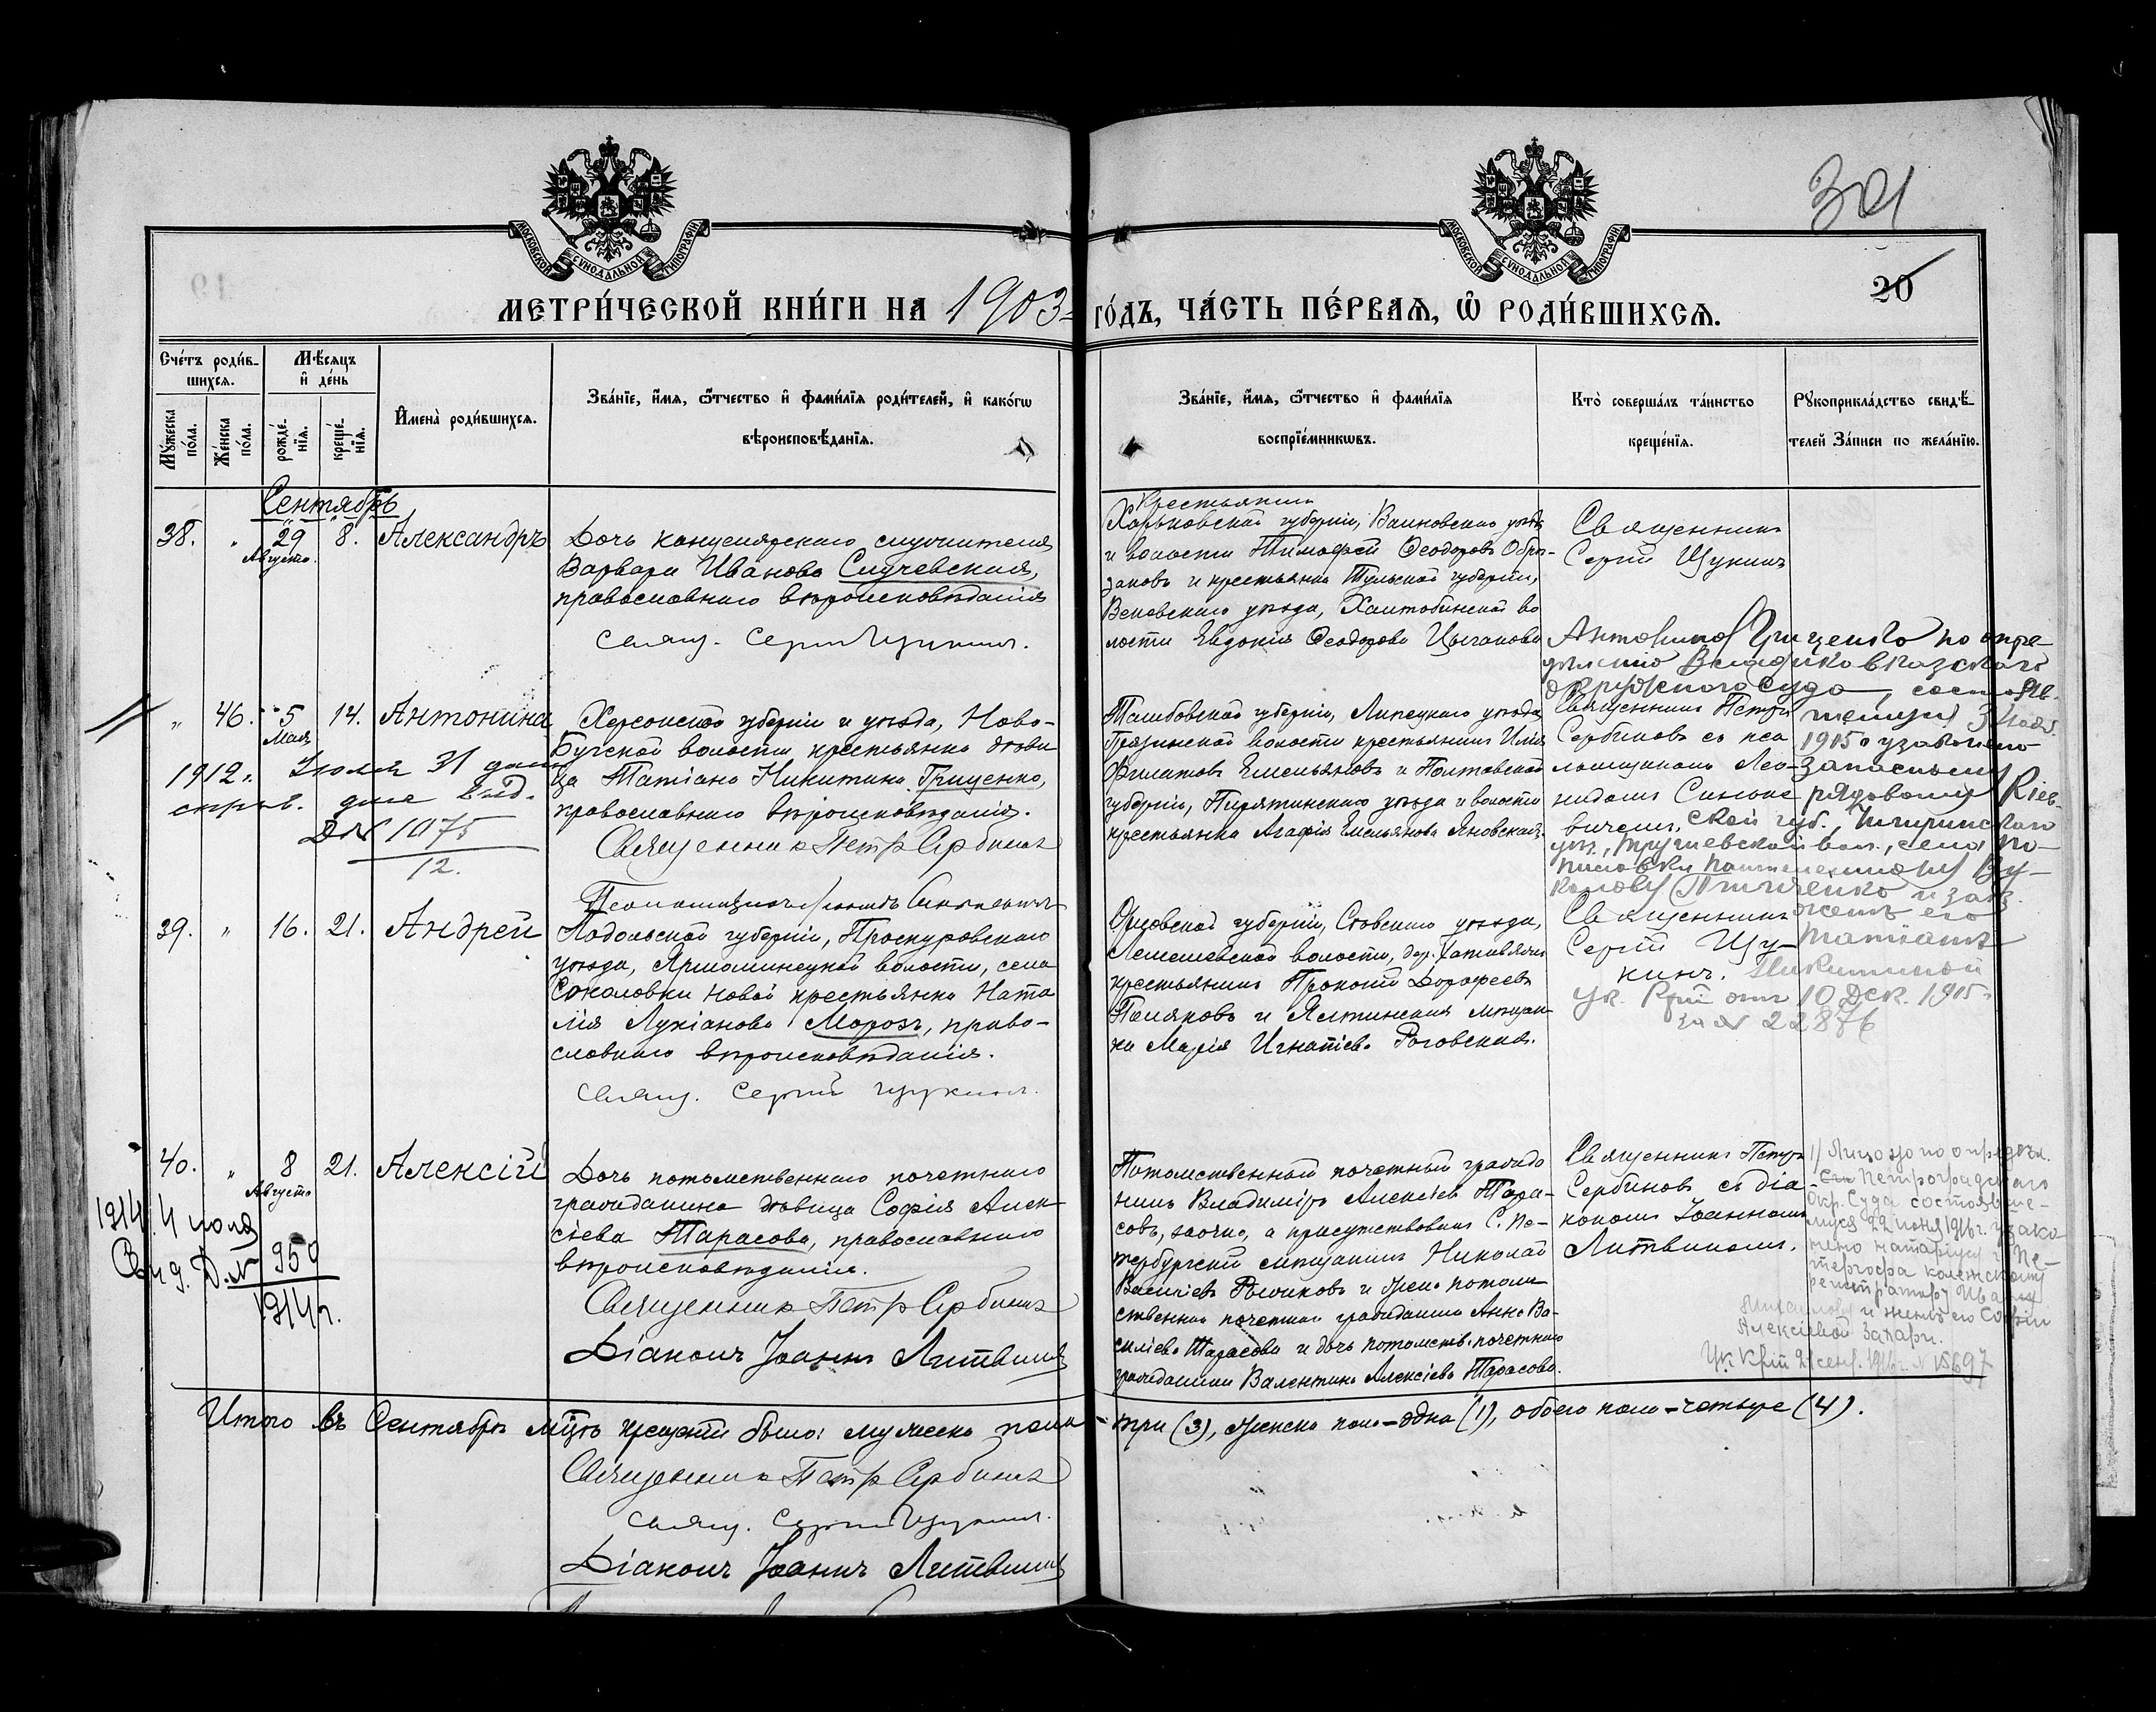 301
20
МОСКОВСКОЙ СѴНОДАЛЬНОЙ ТИПОГРАФІИ
МОСКОВСКОЙ СѴНОДАЛЬНОЙ ТИПОГРАФІИ
МЕТРИ́ЧЕСКОЙ КНИ́ГИ НА 1903 ГО́ДЪ, ЧА́СТЬ ПЕ́РВАѦ, Ѽ РОДИ́ВШИХСѦ.
Сче́тъ роди́в-
шихсѧ.
Мꙋ́жеска по́ла.
Же́нска по́ла.
Мѣ́сѧцъ
и҆ де́нь
рожде́-
нїѧ.
креще́-
нїѧ.
И҆мена̀ роди́вшихсѧ.
Зва́нїе, и҆́мѧ, ѻ҆́тчество и҆ фами́лїѧ роди́телей, и҆ како́гѡ
вѣроисповѣ́данїѧ.
Зва́нїе, и҆́мѧ, ѻ҆́тчество и҆ фами́лїѧ
воспрїе́мникѡвъ.
Кто̀ соверша́лъ та́инство
креще́нїѧ.
Рꙋкоприкла́дство свидѣ́-
телей За́писи по жела́нїю.
Сентябрь
38. " 29 Августа. 8. Александръ
Дочь канцелярскаго служителя
Варвара Иванова Случевская,
православнаго вѣроисповѣданія
Свящ. Сергій Щукинъ.
Крестьянинъ
Харьковской губерніи, Валковскаго уѣзда
и волости Тимофей Ѳеодоровъ Обра-
зцовъ и крестьянка Тульской губерніи,
Веневскаго уѣзда, во
лости Евдокія Ѳеодорова Цыганова
Священникъ
Сергій Щукинъ
" 46. 5 Мая 14. Антонина
Херсонской губерніи и уѣзда, Ново-
Бугской волости крестьянка дѣви
ца Татіана Никитина Гриценко,
православнаго вѣроисповѣданія.
Священникъ Петръ Сербиновъ
Псаломщикъ Леонидъ Синькевичъ
1912 г. Іюля 31 дня
справ. дѣле выд.
Д№ 1075
12.
Тамбовской губерніи, Липецкаго уѣзда
Грязинской волости крестьянинъ Илія
Филатовъ Емельяновъ и Полтавской
губерніи, Пирятинскаго уѣзда и волости
крестьянка Агафія Емельянова Яновская.
Священникъ Петръ
Сербиновъ съ пса
ломщикомъ Лео-
нидомъ Синьке
вичемъ.
Антонина Гриценко по опре-
дѣленію Владикавказскаго
Окружного Суда, состояв-
шемуся 3 Ноя.
1915 г узаконено
запасному
рядовому Кіев-
ской губ., Чигиринскаго
уѣз., Трушевской вол., села
его
Татіанѣ
Никитиной
Ук. Крій отъ 10 Дек. 1915 г.
за № 22876
39. " 16. 21. Андрей
Подольской губерніи, Проскуровскаго
уѣзда, Ярмолинецкой волости, села
Соколовки Новой крестьянка Ната
лія Лукіанова Морозъ, право-
славнаго вѣроисповѣданія.
Свящ. Сергій Щукинъ.
Орловской губерніи, Сѣвскаго уѣзда,
Лемешевской волости, дер.
крестьянинъ Прокопій Дорофеевъ
Поляковъ и Ялтинская мѣщан-
ка Марія Игнатіева Роговская.
Священникъ
Сергій Щу-
кинъ.
40. " 8 Августа 21. Алексій
Дочь потомственнаго почетнаго
гражданина дѣвица Софія Алек-
сіева Тарасова, православнаго
вѣроисповѣданія.
Священникъ Петръ Сербиновъ
Діаконъ Іоаннъ Литвинъ
1914 4 іюля
Выд. Д.№ 950
1914 г.
Потомственный почетный гражда
нинъ Владиміръ Алексіевъ Тара-
совъ, заочно, а присутствовали С. Пе-
тербургскій мѣщанинъ Николай
Василіевъ и жена потом
ственнаго почетнаго гражданина Анна Ва-
силіева Тарасова и дочь потомств. почетнаго
гражданина Валентина Алексіева Тарасова.
Священникъ Петръ
Сербиновъ съ діа
кономъ Іоанномъ
Литвиномъ.
Петроградскаго
Окр. Суда состоявше-
муся 22 іюня 1916 г. узако
нено нотаріусу г. Пе-
тергофа коллежскому
регистратору Ивану
и женѣ его Софіи
Алексіевой
Ук. Крій 21 сент. 1916 г. № 15697
Итого въ Сентябрѣ мѣсяцѣ крещенныхъ было: мужеска пола - три (3), женска пола - одна (1), обоего пола - четыре (4).
Священникъ Петръ Сербиновъ
Свящ. Сергій Щукинъ.
Діаконъ Іоаннъ Литвинъ